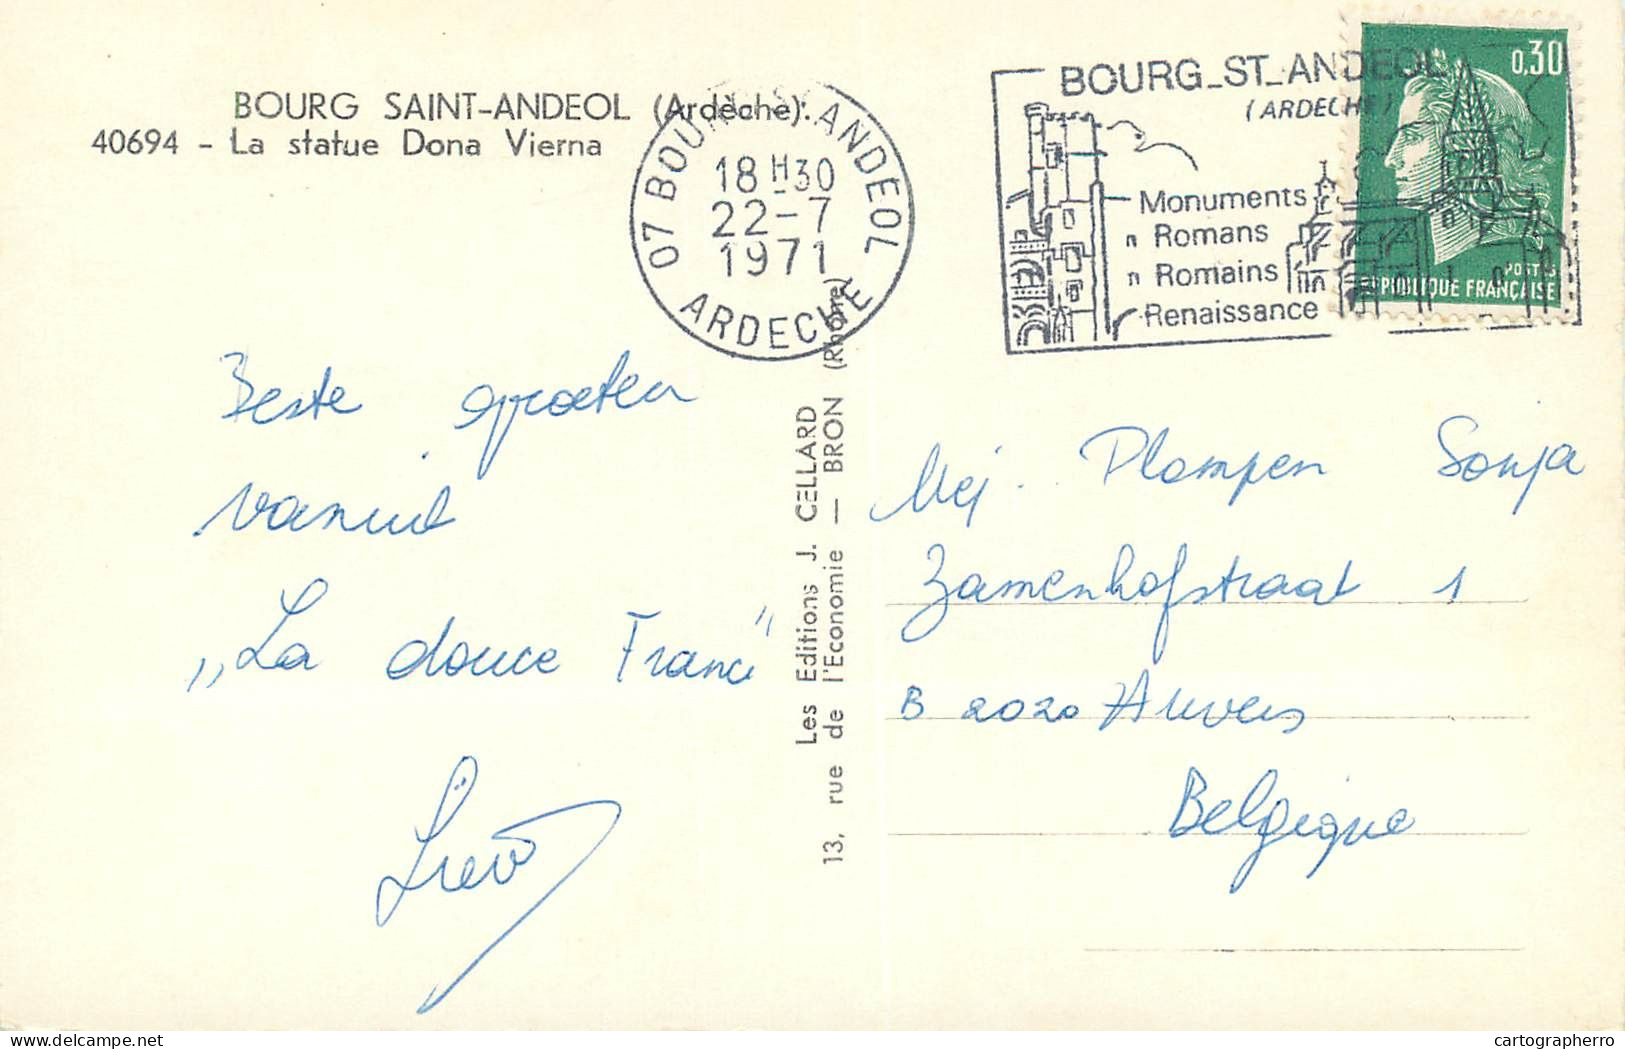 BOURG SAINT-ANDEOL (Ardèche).
40694 - La statue Dona Vierna
07 BOURG ST ANDEOL
18 H 30
22-7
1971
ARDECHE
BOURG_ST_ANDEOL
(ARDECHE)
Monuments
" Romans
" Romains
Renaissance
0,30
POSTES
REPUBLIQUE FRANÇAISE
Beste groeten
vanuit
„La douce France"
Les Editions J. CELLARD
13, rue de l'Economie — BRON (Rhône)
Mej. Plompen Sonja
Zamenhofstraat 1
B 2020 Anvers
Belgique
delcampe.net
cartographerro